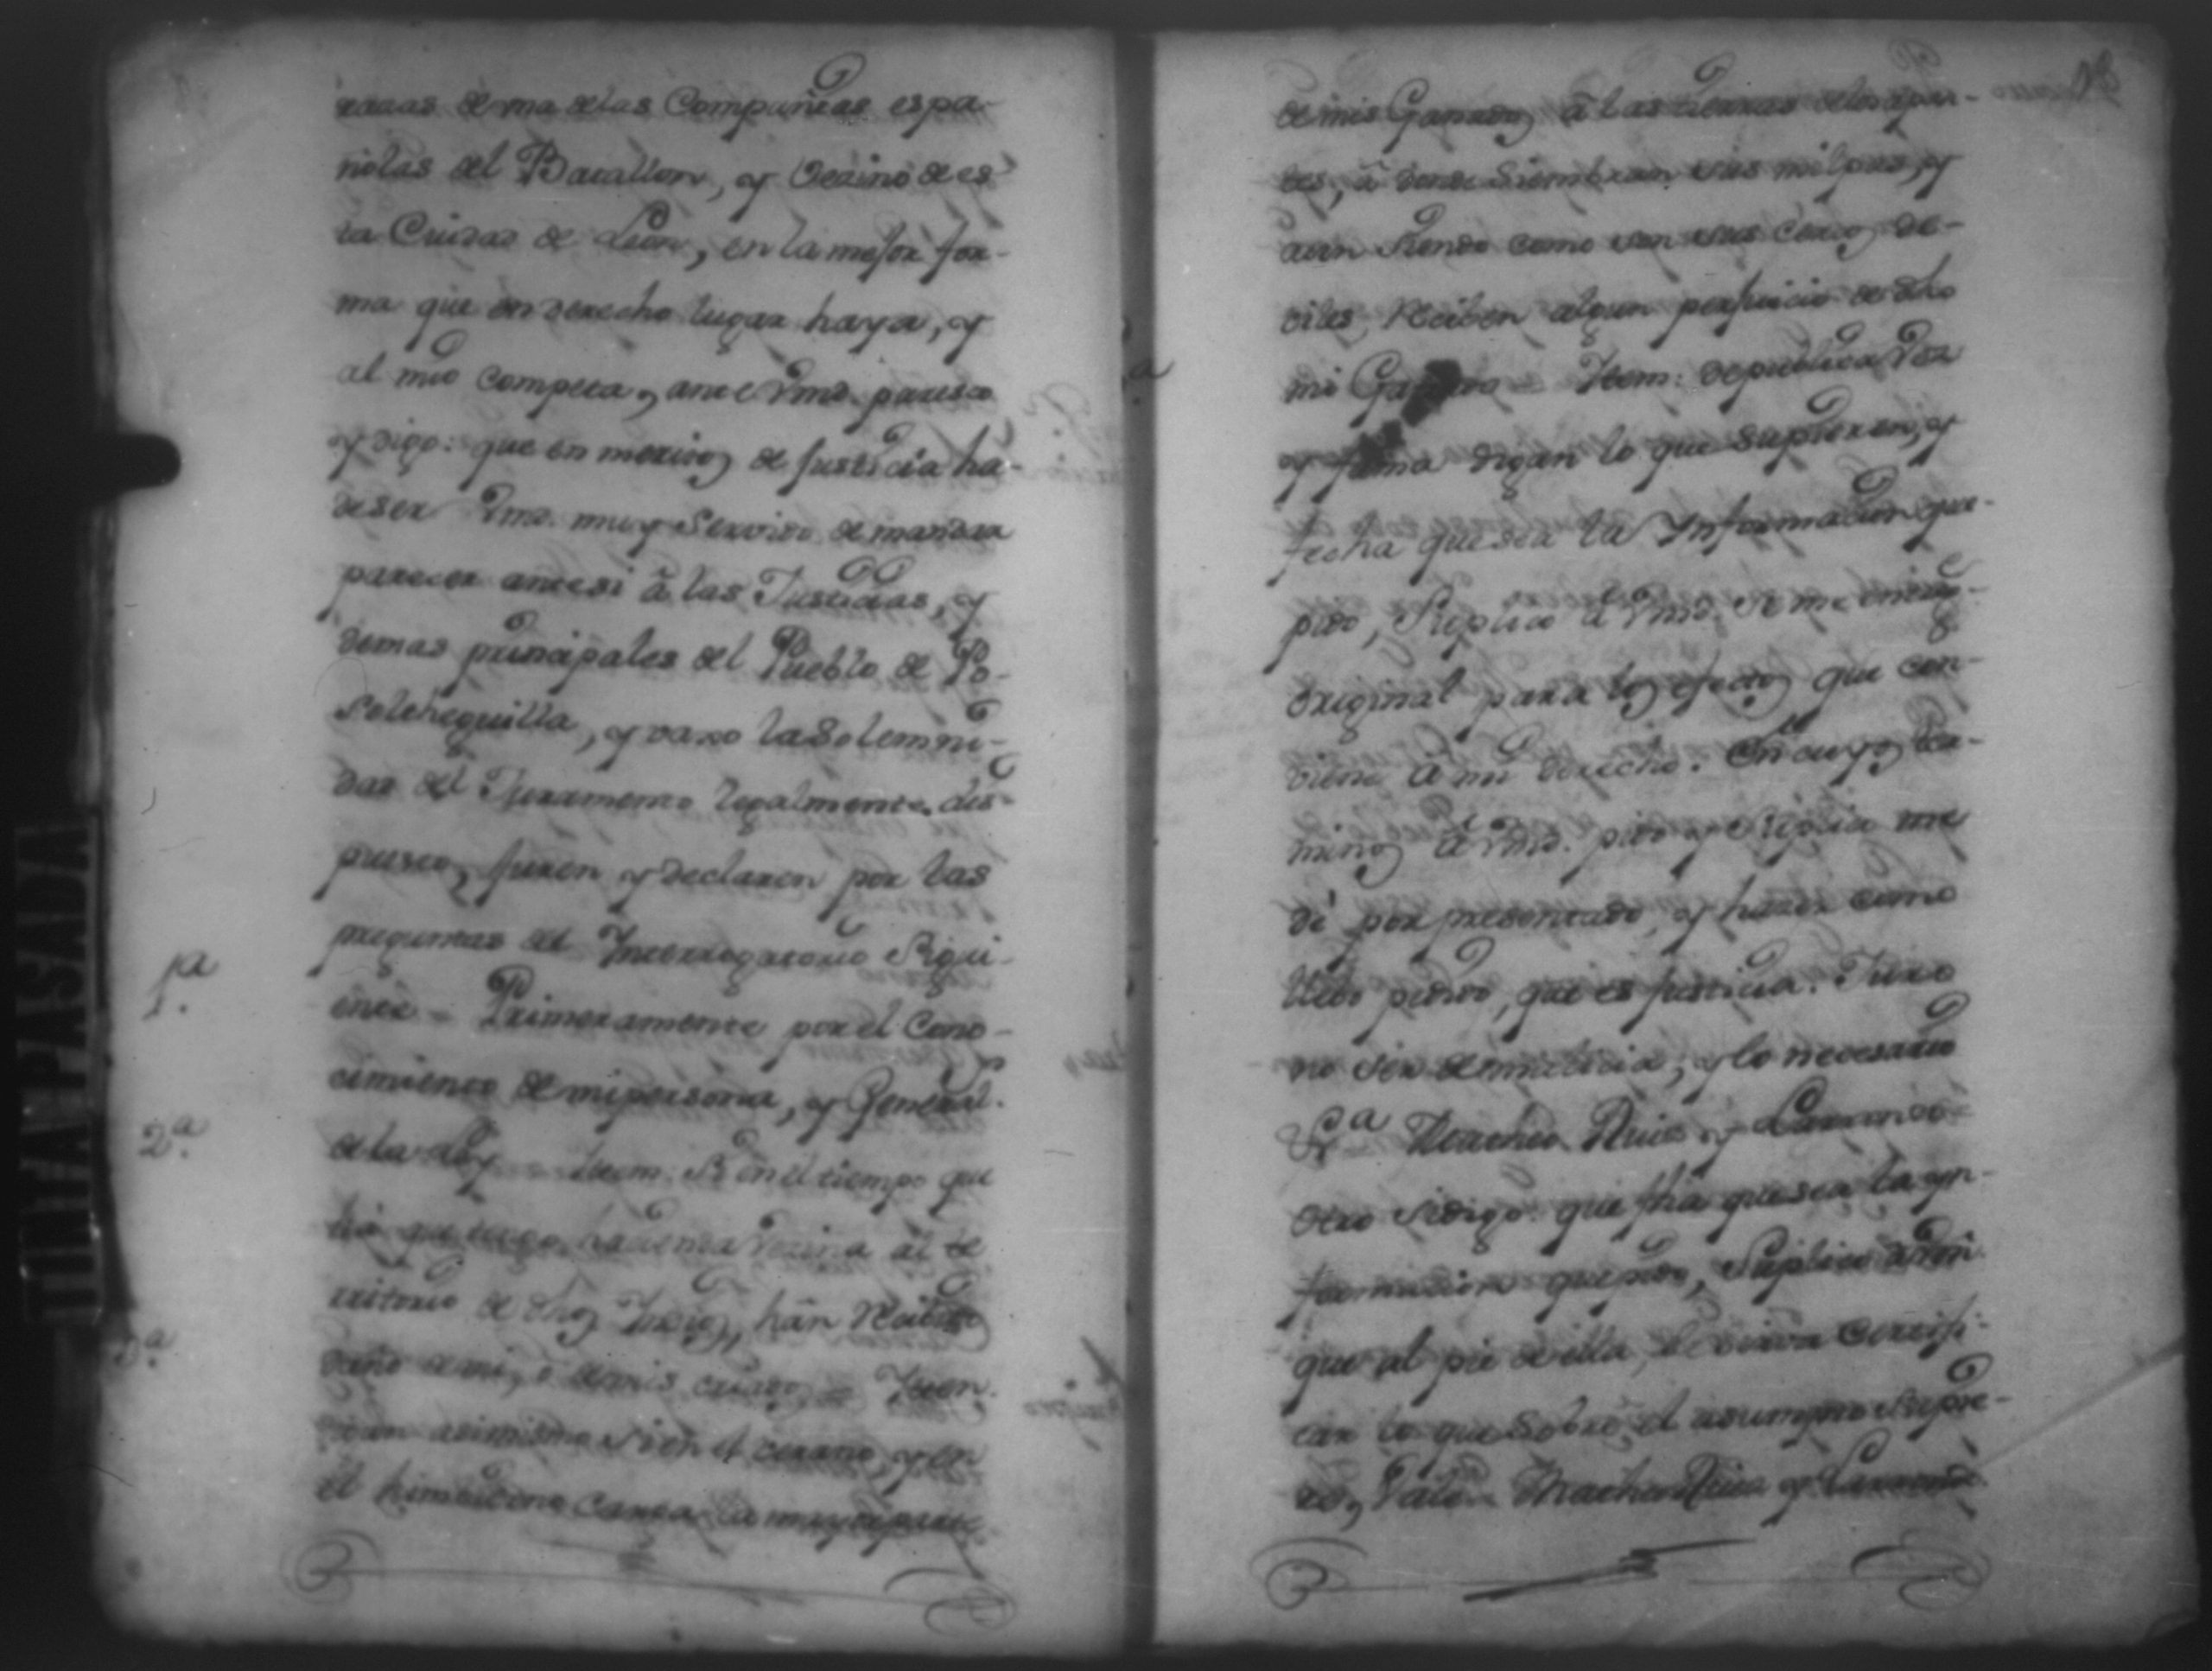 radas de una de las Compañias espa-
ñolas del Batallon, y Vecino de es-
ta Ciudad de Leon, en la mejor for-
ma que en derecho lugar haya, y
al mio competa, ante Vmd. paresco
y digo: que en meritos de Justicia ha
de ser Vmd. muy Servido de mandar
parecer ante si â las Justicias, y
demas principales del Pueblo de Po-
solteguilla, y vaxo la Solemni-
dad del Juramento legalmente dis-
puesto, juren y declaren por las
preguntas del Interrogatorio Sigui-
1ª.
entes = Primeramente por el Cono-
cimiento de mi persona, y General.
2ª.
de la Ley = Item. Si en el tiempo que
há que tengo hacienda Vezina al te-
rritorio de dhos Indios, hán Recibido
3ª.
daño de mi, ó de mis criados = Item.
digan asimismo si en el verano, y en
el himbierno la mayor parte
a
de mis Ganados â las tierras de los
â donde Siembran sus milpas, y
aun Siendo como son sus Cercos de-
viles, Reciben algun perjuicio de dho
mi Ganado = Item: de publica Voz
y fama digan lo que Supieren, y
fecha que sea la Ynformacion que
pido, Suplico â Vmd. se me entreg-
original para los efectos que con-
viene â mi derecho. En cuyos ter-
minos â Vmd. pido y Suplico me
dé por presentado, y hazer como
llevo pedido, que es justicia. Juro
no ser de malicia, y lo necesario
&ª Ruiz y
Otro si digo: que fha que sea la yn-
formacion que pido, Suplico â Vmd.
que al pie de ella, se sirva Certifi-
car lo que Sobre el asumpto Supie-
re, Vale = Ruiz y